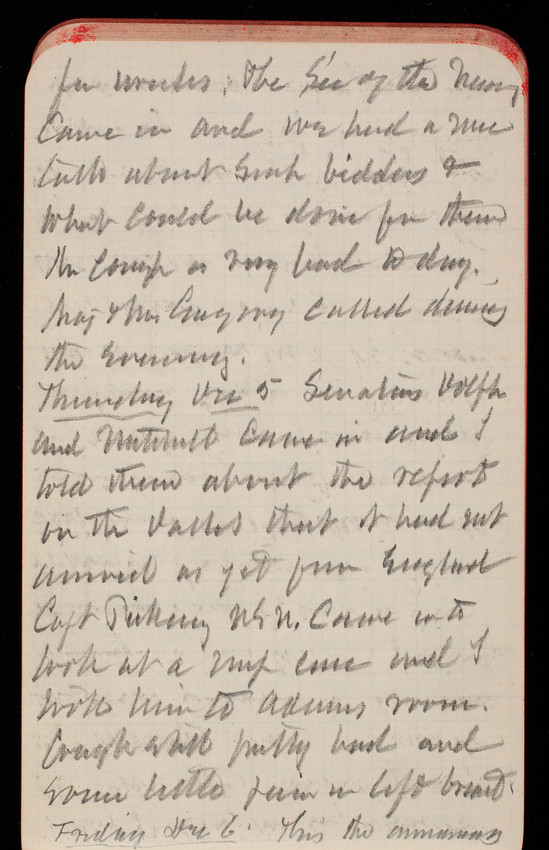 for weeks. The Sec of the Navy
Came in and we had a nice
talk about such bidders &
what could be done for them
My Cough is very bad to day.
Maj & Mrs Gregory called during
the Evening.
Thursday Dec 5 Senators Dolph
and Mitchell Came in and I
told them about the report
on the Dalles that it had not
arrived as yet from England
Capt Picking U.S.N. Came in to
look at a map case and I
took him to Adams room.
Cough still pretty bad and
some little pain in left breast.
Friday Dec 6. This the